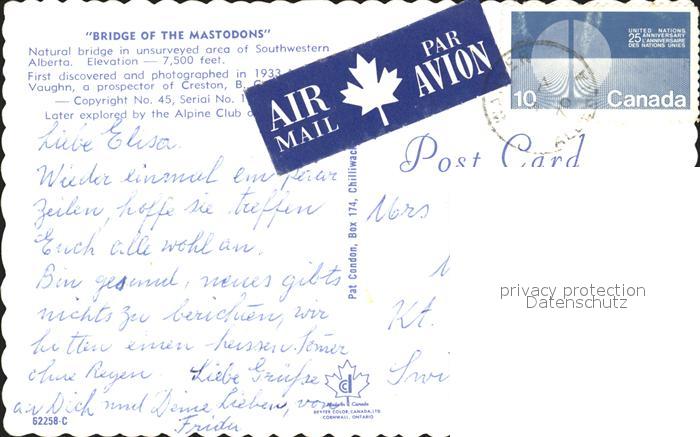 "BRIDGE OF THE MASTODONS"
Natural bridge in unsurveyed area of Southwestern
Alberta. Elevation — 7,500 feet.
First discovered and photographed in 1933
Vaughn, a prospector of Creston, B.
— Copyright No. 45, Serial No. 1
Later explored by the Alpine Club
AIR
MAIL
PAR
AVION
UNITED NATIONS
25 ANNIVERSARY
L'ANNIVERSAIRE
DES NATIONS UNIES
10 Canada
Post Card
Liebe Elisa.
Wieder einmal ein paar
Zeilen, hoffe sie treffen
Euch alle wohl an.
Bin gesund, neues gibts
nichts zu berichten, wir
hatten einen heissen Somer
ohne Regen. Liebe Grüsse
an Dich und Deine Lieben, von
Fridu
Pat Condon, Box 174, Chilliwac
Mrs
Kt.
Swi
privacy protection
Datenschutz
Made in Canada
DEXTER COLOR CANADA, LTD.
CORNWALL, ONTARIO
62258-C